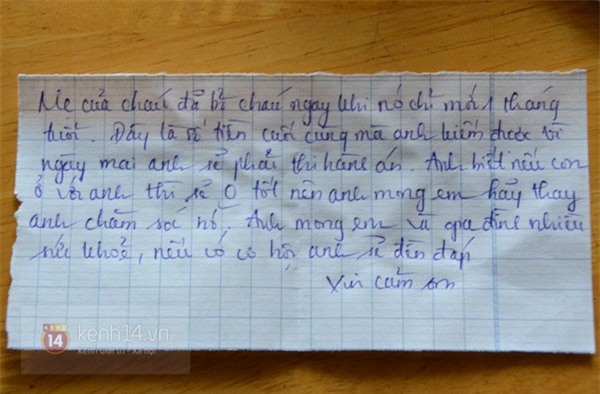 Mẹ của cháu đã bỏ cháu ngay khi nó chỉ mới 1 tháng
tuổi. Đây là số tiền cuối cùng mà anh kiếm được vì
ngày mai anh sẽ phải thi hành án. Anh biết nếu con
ở với anh thì sẽ 0 tốt nên anh mong em hãy thay
anh chăm sóc nó. Anh mong em và gia đình nhiều
sức khoẻ, nếu có cơ hội anh sẽ đền đáp
Xin cảm ơn
KENH 14
kenh14.vn
Kênh Giải trí - Xã hội